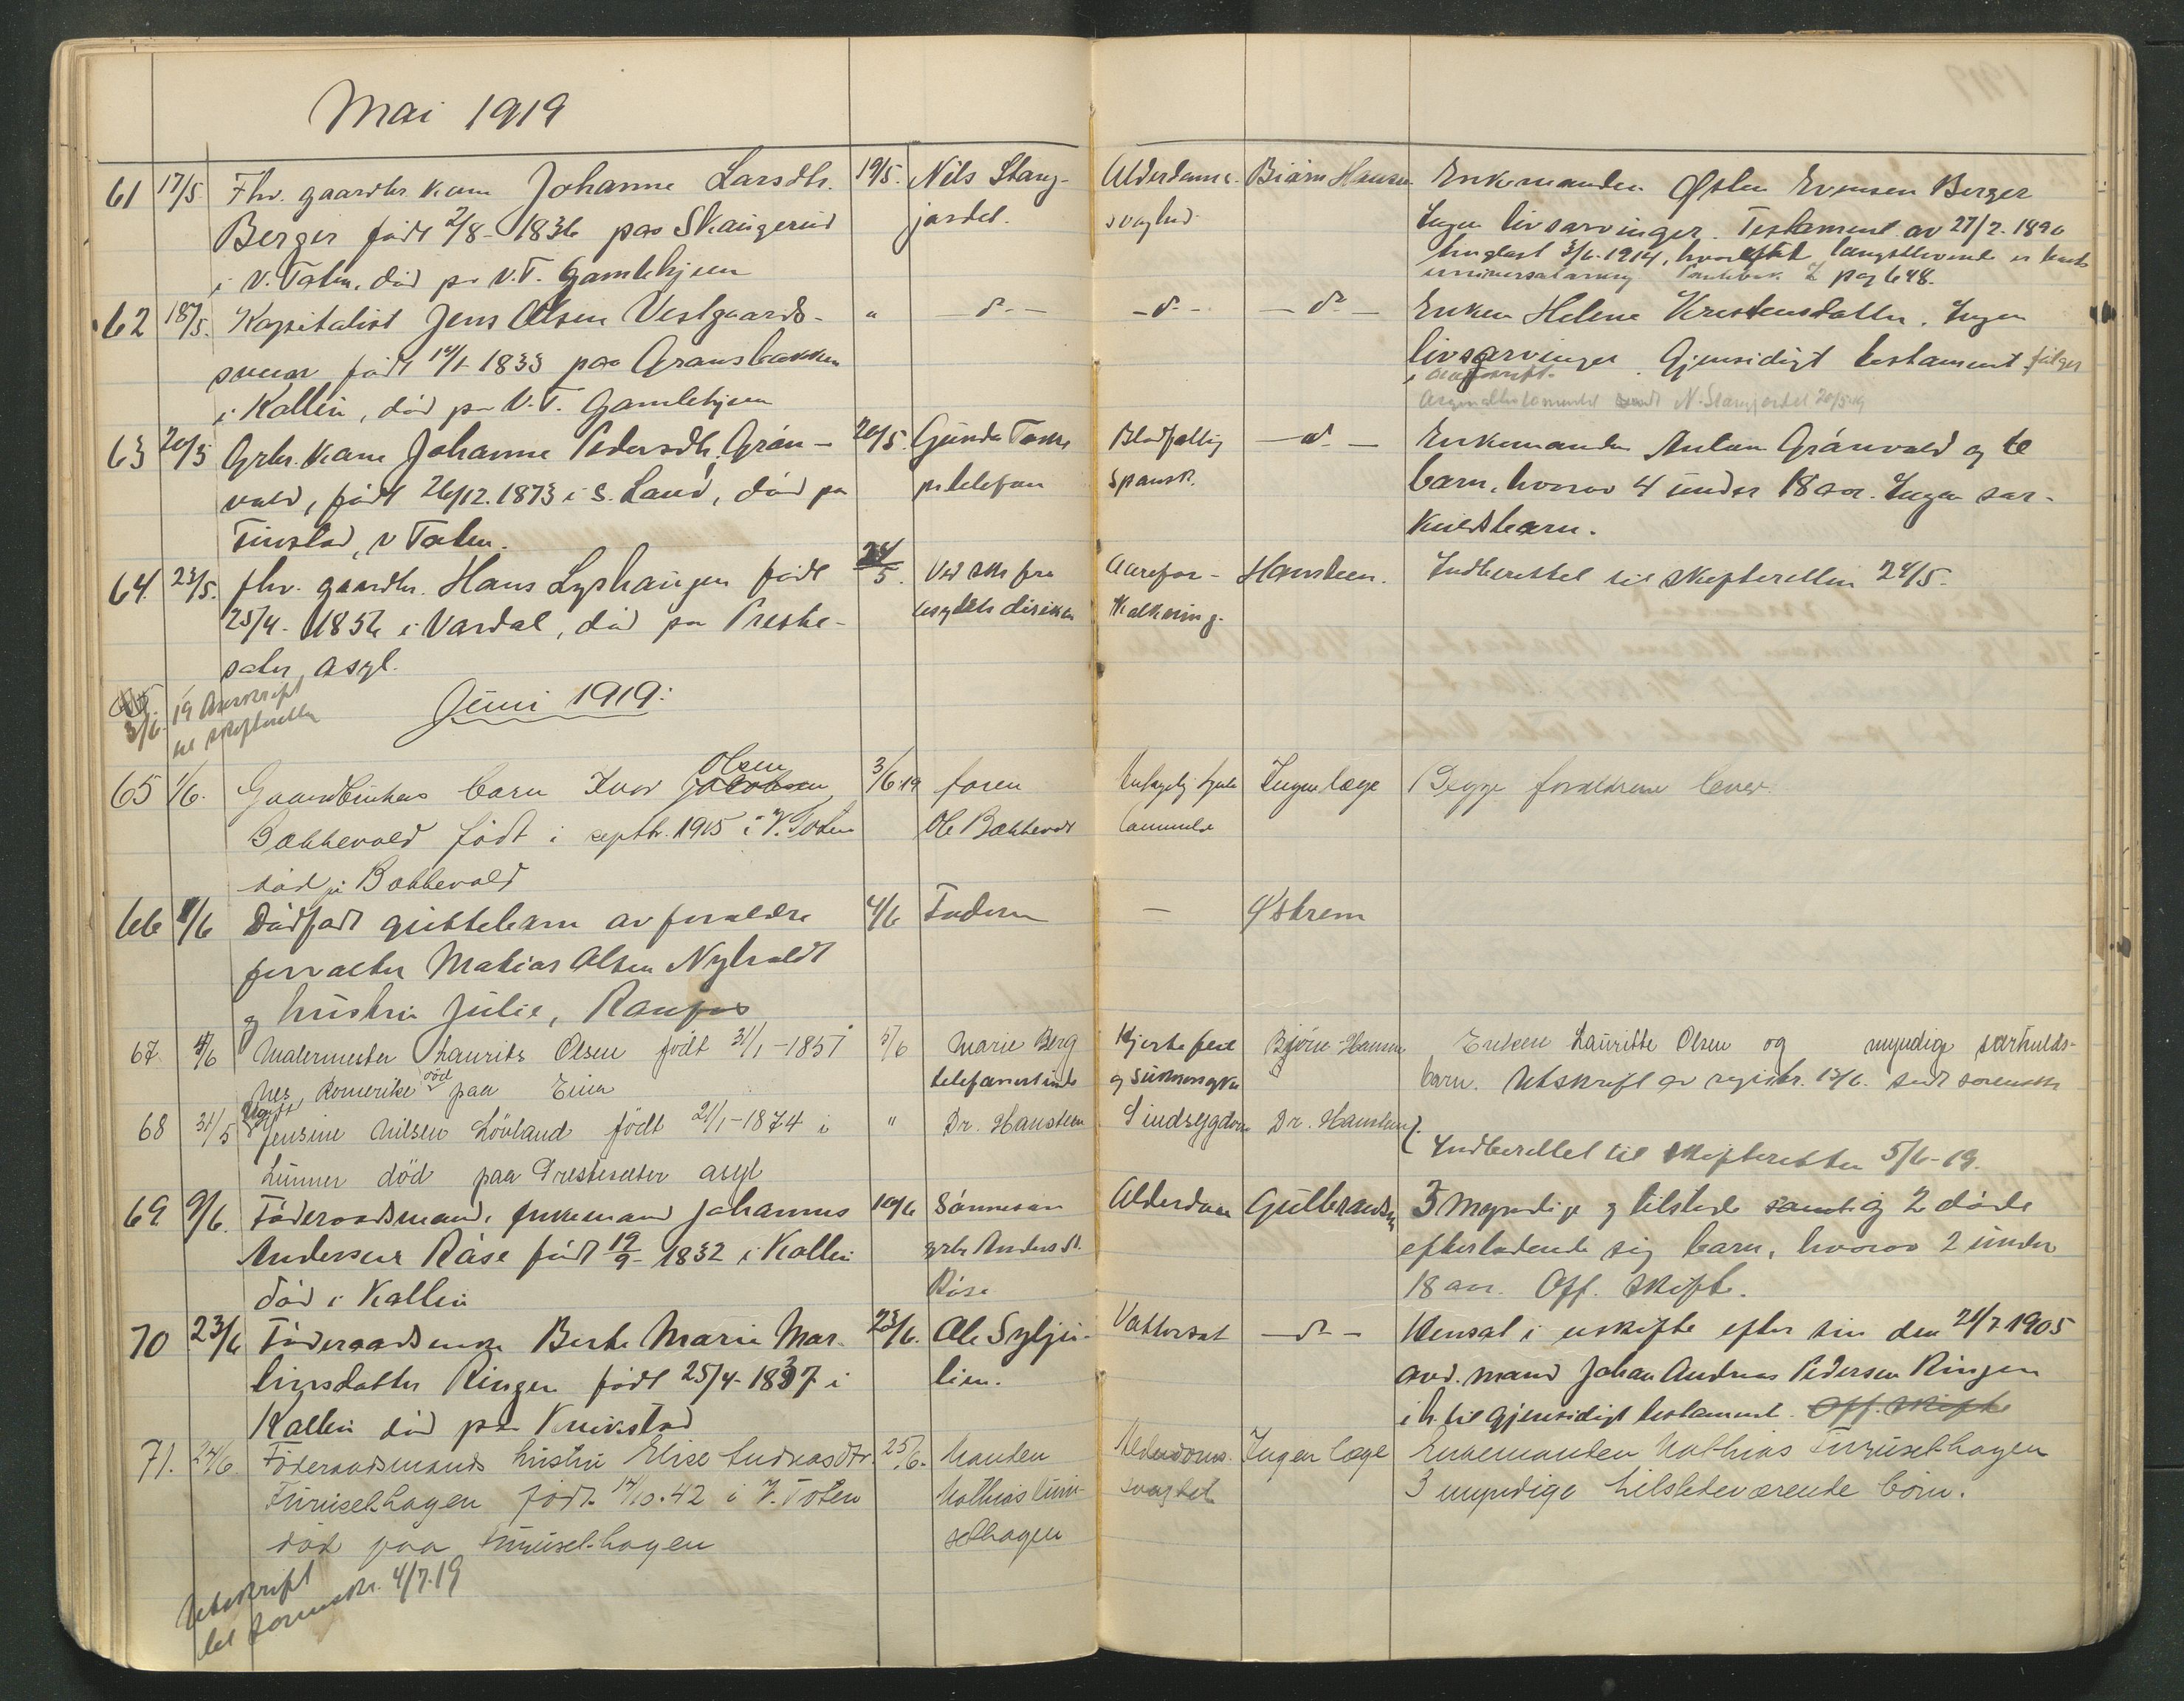 Mai 1919
61 17/5. Fhv. gaardbr. kone Johanne Larsdtr. 19/5. Nils Stang- Alderdoms- Biørn Hansen Enkemanden Østen Evensen Berger
Berger født 2/8-1836 paa Skaugerud jordet. svaghed. Ingen livsarvinger. Testament av 27/2-1890
i V. Toten, død paa V.T. Gamlehjem tinglæst 3/6-1914, hvorefter længstlevende er
universalarving. pag 648.
62 18/5. Kapitalist Jens Olsen Vestgaards- " - d - - d - - d - Enken Helene Kristensdatter. Ingen
sveen født 1833 paa Gransbakken livsarvinger. Gjensidigt testament følger
i avskrift.
i Kolbu, død paa V.T. Gamlehjem N. Stangjordet 20/5-19
63 20/5 Grbr. kone Johanne Pedersdtr. Grøn- 20/5. Gunda Blodfattig - d - Enkemanden Anton Grønvold og 10
vold, født 26/12.1873 i S. Land, død pa pr telefon spansk. barn, hvorav 4 under 18 aar. Ingen sær-
Finstad, V Toten. kuldsbarn.
64. 23/5. fhv. gaardbr. Hans Lyshaugen født 24/5. Ved skr fra Aarefor- Hansteen. Indberettet til skifteretten 24/5.
25/4-1856 i Vardal, død pa Preste- asylets direktør kalkning.
sæter asyl.
3/6. 19 Avskrift
til skifteretten
Juni 1919:
Olsen
65 1/6. Gaardbrukers barn Ivar Jacobsen 3/6-19 faren Ingen læge Begge forældrene lever.
Bakkevold født i septbr. 1915 i V. Toten Ole Bakkevold
død pi Bakkevold
66 1/6 Dødfødt guttebarn av forældre 4/6 Faderen - Østrem
forvalter Matias Olsen Nyholdt
og hustru Julie, Raufos
67. 4/6 Malermester Laurits Olsen født 31/1-1857 5/6 Marie Berg Hjertefeil Bjørn-Hansen Enken Lauritte Olsen og myndige særkulds-
Nes, Romerike død paa Eina telefonistinde og barn. Utskrift av registr. 13/6. sendt sorenskr
68 31/5 Ugift Jensine Nilsen Lövland født 21/1-1874 i " Dr. Hansteen Sindssygdom Dr. Hansteen
Lunner död paa Prestesæter asyl Indberettet til skifteretten 5/6-19.
69 9/6. Föderaadsmand, enkemand Johannes 10/6 Sønnesøn Alderdom Gulbrandsen 3 myndige og tilstede samt og 2 døde
Andersen Røse født 19/9-1832 i Kolbu grbr Anders A. efterladende sig barn, hvorav 2 under
død i Kolbu Røse 18 aar. Off. skifte.
70 23/6 Föderaadsenke Berte Marie Mar- 23/6. Ole Sylju- Vattersot - d - Hensat i uskifte efter sin den 21/7 1905
tinsdatter Ringen født 25/4-1837 i lien. avd. mand Johan Andreas Pedersen Ringen
Kolbu død paa Knikstad i h. til gjensidigt testament. Off. skifte
71. 24/6. Föderaadsmands hustru Elise Andreasdtr. 25/6. Manden Alderdoms- Ingen læge Enkemanden Mathias Furuselhagen
Furuselhagen født 17/10.42 i V. Toten Mathias Furu- svaghet 3 myndige tilstedeværende börn.
död paa Furuselhagen selhagen
Utskrift
til sorenskr. 4/7.19